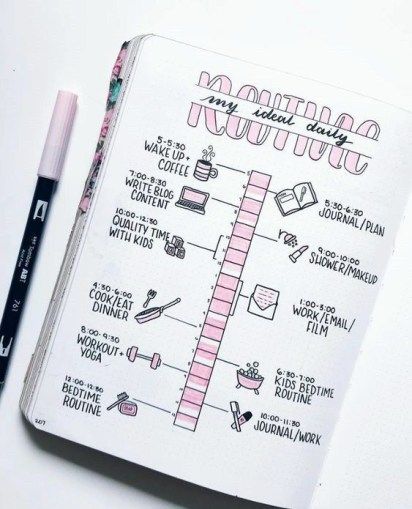 my ideal daily
ROUTINE
5-5:30
WAKE UP +
COFFEE
5:30-6:30
JOURNAL/PLAN
7:00-8:30
WRITE BLOG
CONTENT
9:00-10:00
SHOWER/MAKEUP
10:00-12:30
QUALITY TIME
WITH KIDS
WORK/EMAIL/
FILM
4:30-6:00
COOK/EAT
DINNER
6:30-7:00
KIDS BEDTIME
ROUTINE
8:00-9:30
WORKOUT+
YOGA
10:00-11:30
JOURNAL/WORK
12:00-12:30
BEDTIME
ROUTINE
207
Tombow ABT
761